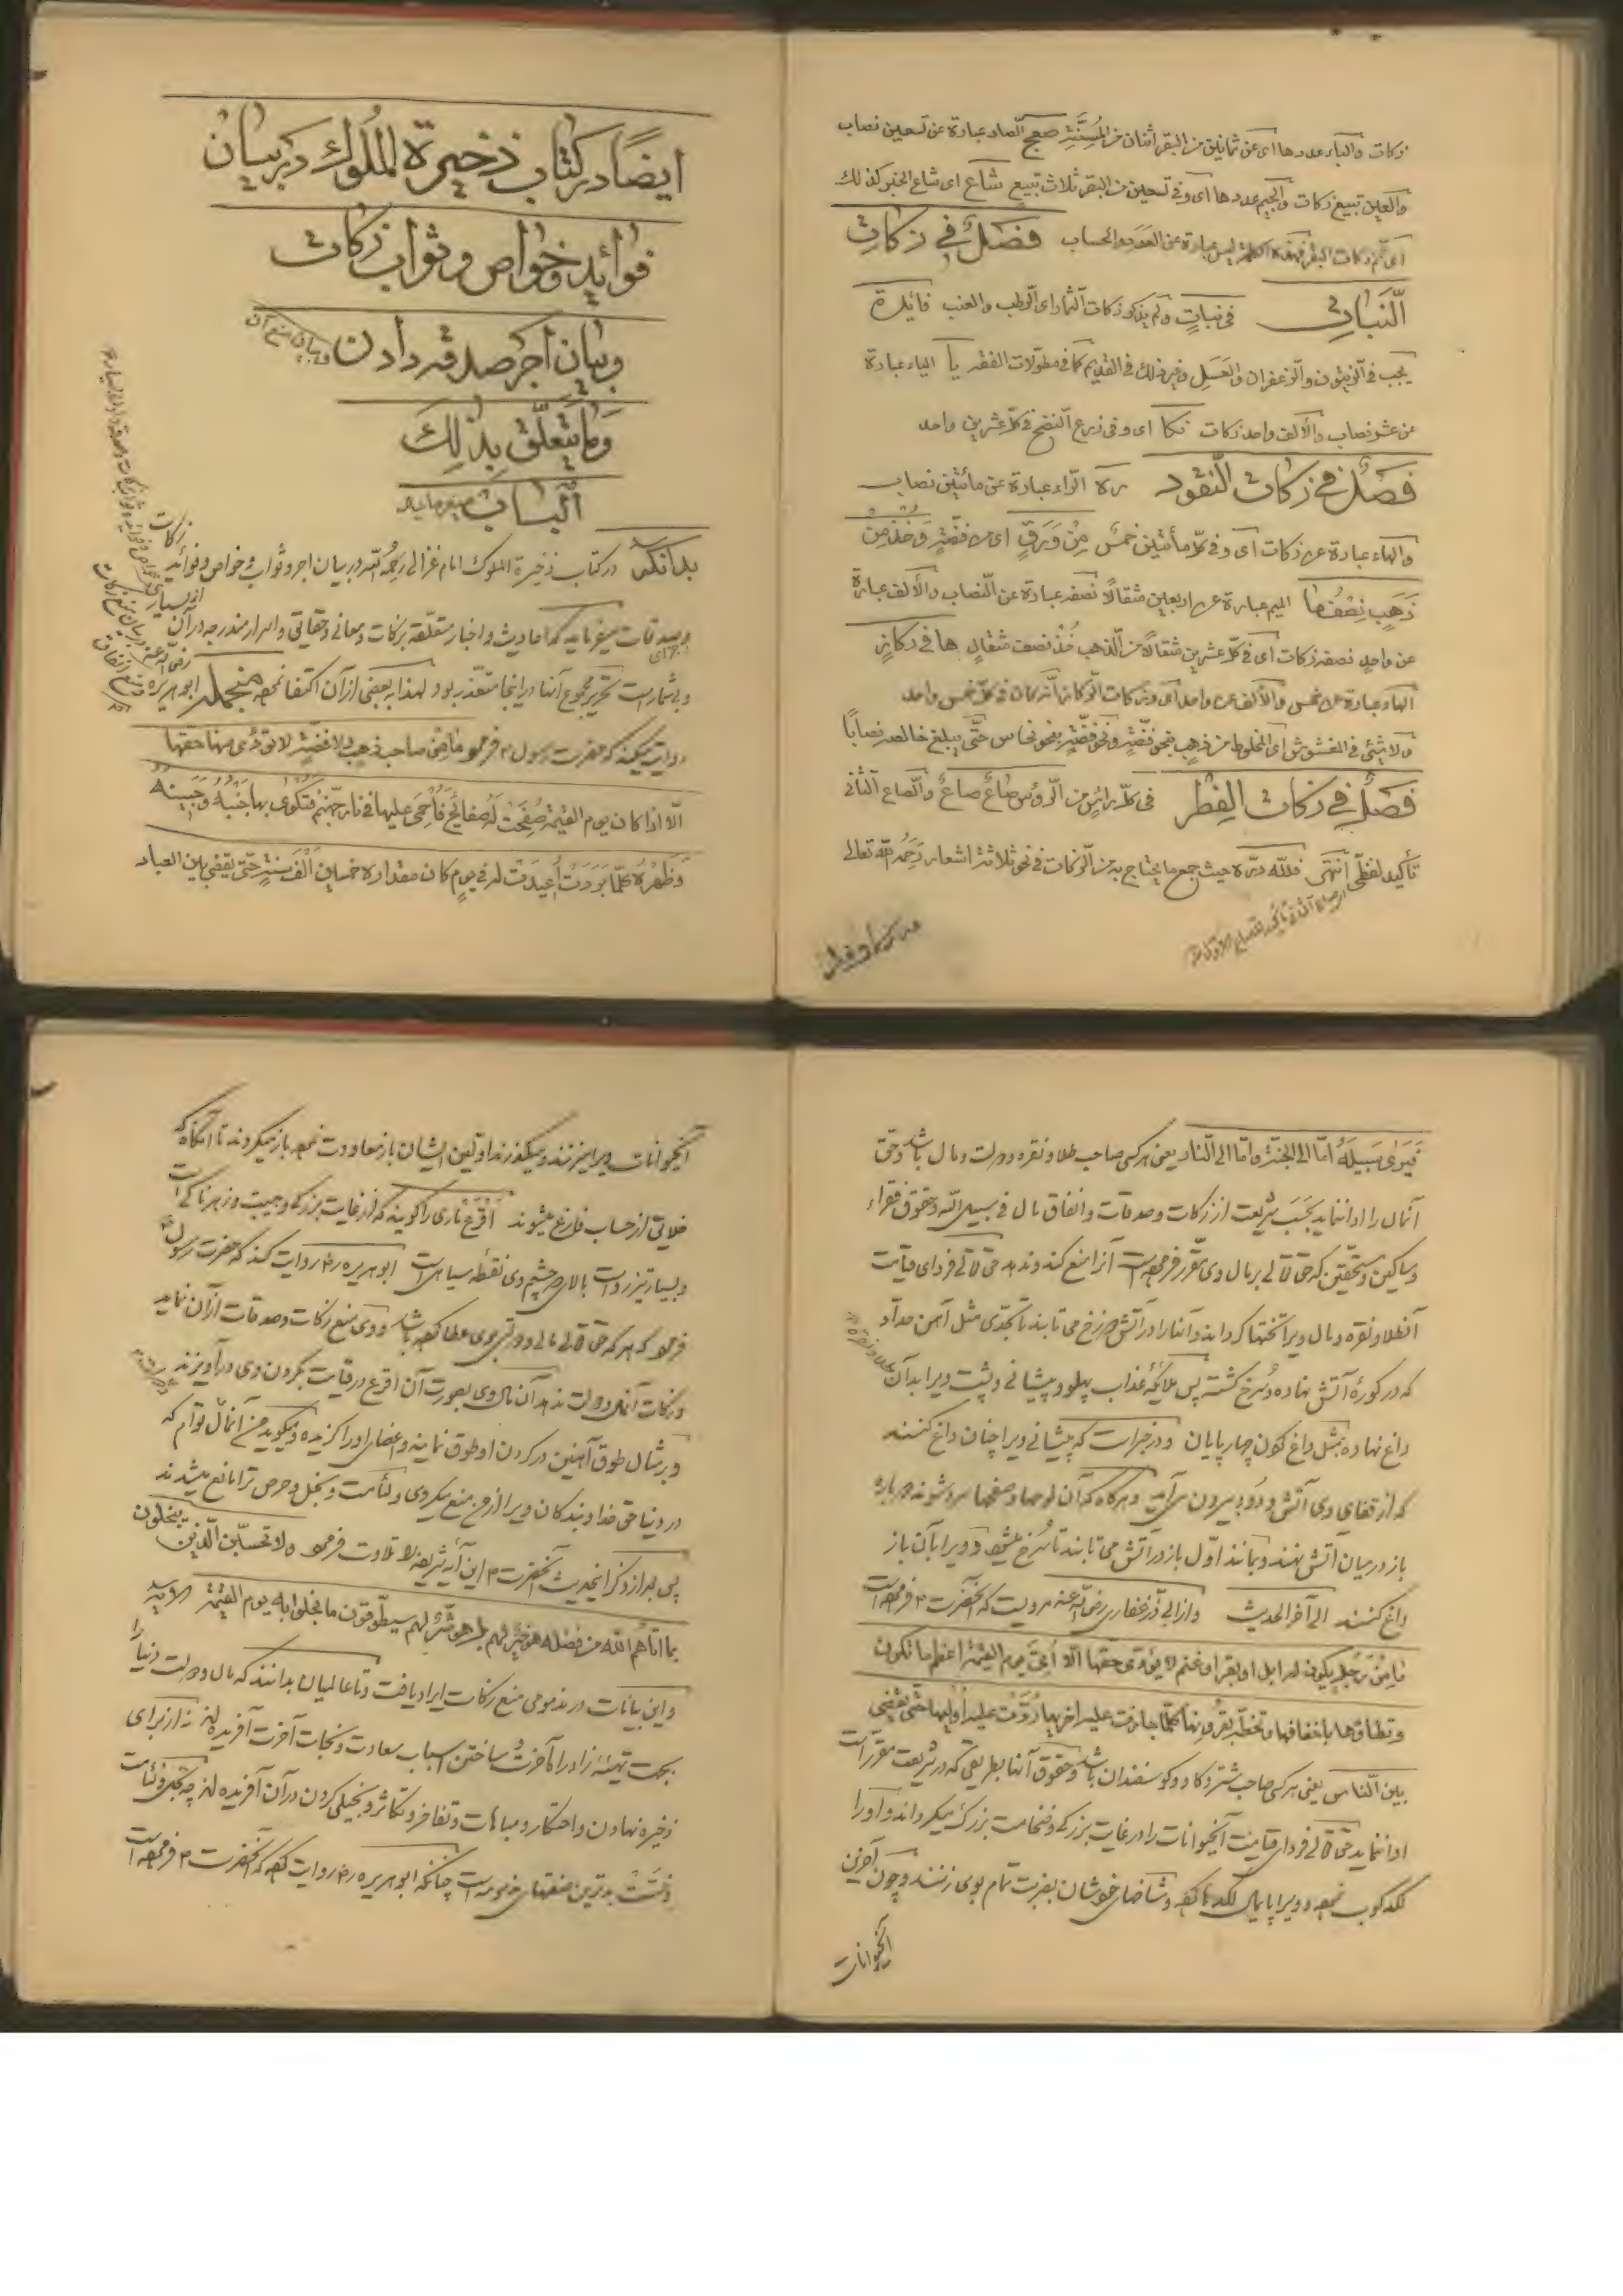 زكات والباء عددها اى عن ثمانين من البقر اثنان من المُسِنَّةِ صعج الصاد عبارة عن تسعين نصاب
والعين تبيع زكات والجيم عددها اى وفى تسعين من البقر ثلاث تبيع شاع اى شاع الخبر كذلك
فصلٌ فى زكات
النّبات فى نبات ولم يذكر زكات الثمار اى الرطب والعنب فائدة
يجب فى الزيتون والزعفران والعسل وغير ذلك فى القديم كما فى مطوّلات الفقه يا الياء عبارة
عن عشر نصاب والالف واحد زكات اى وفى زرع النضح فى كلّ عشرين واحد
فصلٌ فى زكات النّقود ره الرّاء عبارة عن مائتين نصاب
والهاء عبارة عن زكات اى وفى كلّ مأتين خمسٌ مِنْ وَرَقٍ اى من فضّةٍ وَخُذْ مِنْ
ذَهَبٍ نِصْفُها الميم عبارة عن اربعين مثقالًا نصفه عبارة عن النّصاب والالف عبارة
عن واحدٍ نصفه زكات اى فى كلّ عشرين مثقالًا من الذّهب خُذْ نصف مثقالٍ ها فى ركازٍ
الهاء عبارة عن خمس والالف عن واحد اى وزكات الرّكاز فى كلّ خمس واحد
ولا شئ فى الغشوش اى المخلوط من ذهبٍ بنحو فضّةٍ ونحو فضّةٍ بنحو نحاس حتّى يبلغ خالصه نصابًا
فصلٌ فى زكات الفِطْر فى كلّ رأسٍ من الرّؤس صاعٌ صاعٌ والصّاع الثانى
تأكيد لفظىّ انتهى فللّه درّه حيث جمع ما يحتاج به من الزكات فى نحو ثلاثة اشعار رَحِمَهُ اللّه تعالى
ايضًا در كتاب ذخيرة المُلوك در بيان
فوائد وخواص وثواب زكات
وبيان اجر صدقه دادن وبيان منع آن
وما يتعلّق بذلك
الباب
بدانكه در كتاب ذخيرة الملوك امام غزالى رحمه الله در بيان اجر وثواب وخواص وفوائد زكات
وصدقات ميفرمايد كه احاديث واخبار متعلّقهٔ بزكات ومعانى وحقائق واسرار مندرجهٔ در آن
وبى شمار است تحرير مجموع آنها در اينجا متعذّر بود ولهذا ببعضى از آن اكتفا نمود منجمله ابو هريره
روايت ميكند كه حضرت رسول م فرمود ما من صاحب ذهبٍ ولا فضّةٍ لا يؤدّى منها حقّها
الّا اذا كان يوم القيمة صُفِحَتْ لَهُ صفائحُ فَاُحْمِىَ عليها فى نار جهنّم فتكوى بها جَنْبُهُ وَجَبِينُهُ
وَظَهْرُهُ كلّما بردت اُعيدت له فى يومٍ كان مقداره خمسين الف سنةٍ حتّى يقضى بين العباد
فَيَرى سَبيلَهُ امّا الى الجنّة وامّا الى النّار يعنى هر كس صاحب طلا ونقره ودولت ومال باشد وحقّ
آنمال را ادا ننمايد بحسب شريعت از زكات وصدقات وانفاق مال فى سبيل الله وحقوق فقراء
ومساكين ومستحقّين كه حق تعالى بر مال وى مقرّر فرموده است آنرا منع كند وندهد حق تعالى فرداى قيامت
آنطلا ونقره ومال ويرا تختها گرداند وآنها را در آتش دوزخ مى تابند تا بحدّى مثل آهن حدّاد
كه در كورهٔ آتش نهاده وسرخ گشته پس ملائكهٔ عذاب پهلو وپيشانى وپشت ويرا بدان
داغ نهاده بمثل داغ كردن چهارپايان ودر خبر است كه پيشانى ويرا چنان داغ كنند
كه از قفاى وى آتش ودود بيرون مى آيد وهرگاه كه آن لوحها وصفحها سرد شوند دوباره
باز در ميان آتش نهند وبمانند اوّل باز در آتش مى تابند تا سُرخ ميشود وويرا بآن باز
داغ كنند الى آخر الحديث واز ابى ذر غفارى رضى الله عنه مرويست كه آنحضرت م فرموده است
ما مِنْ رَجُلٍ يكون له ابل او بقر او غنم لا يؤدّى حقّها الّا اُتِىَ يوم القيمة اعظم ما تكون
وتطاؤها باخفافها وتنطحه بقرونها كلّما جازت عليه اخريها رُدَّتْ عليه اُوليها حتّى يقضى
بين النّاس يعنى هر كس صاحب شتر وگاو وگوسفندان باشد وحقوق آنها بطريقى كه در شريعت مقرّر است
ادا ننمايد حق تعالى فرداى قيامت آنحيوانات را در غايت بزرگى وضخامت بزرگ ميگرداند واو را
لگدكوب نموده وويرا پايمال لگدها كرده وشاخهاى خودشان بضربت تمام بوى زنند وچون آخرين
آنحيوانات
آنحيوانات ويرا ميزنند وميگذرند اوّلين ايشان باز معاودت نموده باز ميگردند تا آنگاه كه
خلائق از حساب فارغ ميشوند اقرع مارى را گويند كه از غايت بزرگى وهيبت وزهرناكى است
وبسيار تيز رو است بالاى هر چشم وى نقطهٔ سياهى است ابو هريره رض روايت كند كه حضرت رسول
فرمود كه هر كه حق تعالى مالى ودولتى بوى عطا كرده باشد ووى منع زكات وصدقات از آن نمايد
وزكات آنمال ودولت ندهد آن مال وى بصورت آن اقرع در قيامت بگردن وى در آويزند
وبر مثال طوق آهنين در گردن او طوق نمايند واعضاى او را گزيده وميگويد من آنمال توام كه
در دنيا حق خدا وبندگان ويرا از من منع ميكردى ولئامت وبخل وحرص ترا مانع ميشدند
پس بعد از ذكر اينحديث آنحضرت م اين آيهٔ شريفه را تلاوت فرمود ولا تحسبنّ الّذين يبخلون
بما آتاهُمُ الله من فضله هو خيرٌ لهم بل هو شرٌّ لهم سيطوّقون ما بخلوا به يوم القيمة الآيه
واين بيانات در مذمومى منع زكات ايراد يافت وتا عالميان بدانند كه مال ودولت دنيا را
بجهت تهيّهٔ زاد راه آخرت وساختن اسباب سعادت ونجات آخرت آفريده اند نه از براى
ذخيره نهادن واحتكار ومباهات وتفاخر وتكاثر وبخيلى كردن در آن آفريده اند چه بخل ولئامت
وخسّت بدترين صفتهاى مذمومه است چنانكه ابو هريره رض روايت كرده كه آنحضرت م فرموده است